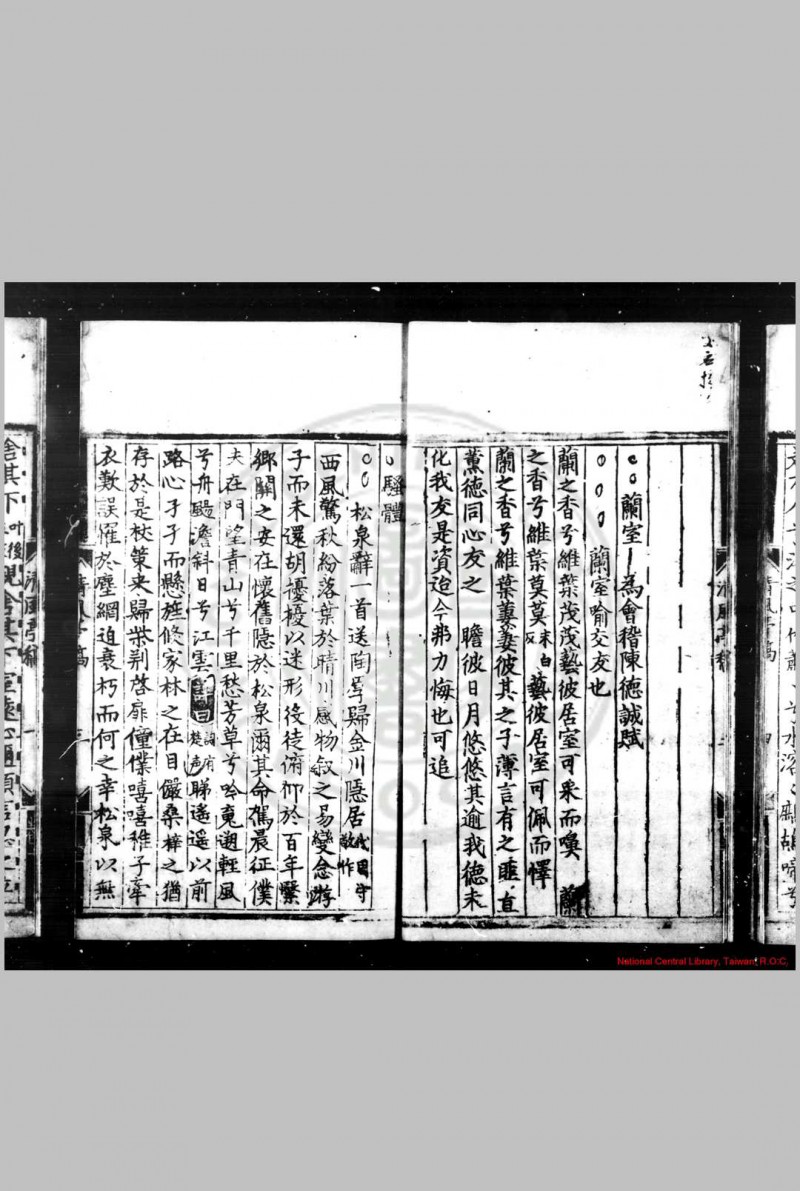 蘭室一為會稽陳德誠賦
蘭室喻交友也
蘭之香兮維葉茂茂藝彼居室可采而嗅 蘭
之香兮維葉莫莫末各反藝彼居室可佩而懌
蘭之香兮維葉萋萋彼其之子薄言有之匪直
薰德同心友之 瞻彼日月悠悠其逾我德未
化我友是資迨今弗力悔也可追
騷體
松泉辭一首送陶 歸金川隱居
西風驚秋紛落葉於晴川感物敘之易變念游
子而未還胡擾擾以迷形役徒俯仰於百年繄
鄉關之安在懷舊隱於松泉爾其命駕晨征僕
夫在門望青山兮千里愁芳草兮吟魂遡輕風
兮舟颺澹斜日兮江雲 睇遙遙以前
路心孑孑而懸旌倏家林之在目儼桑梓之猶
存於是杖策來歸柴荆啓扉僮僕嘻嘻稚子牽
衣歎誤罹於塵網迫衰朽而何之幸松泉以無
清風亭稿
清風亭稿
National Central Library, Taiwan, R.O.C.